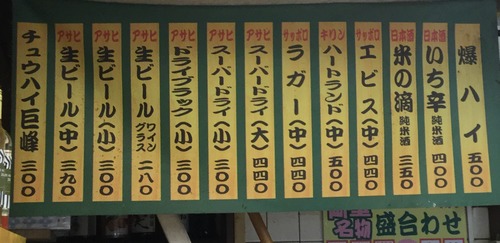 爆ハイ 五〇〇
日本酒 いち辛 純米酒 四〇〇
日本酒 米の滴 純米酒 三五〇
サッポロ エビス(中) 四四〇
キリン ハートランド(中) 五〇〇
サッポロ ラガー(中) 四四〇
アサヒ スーパードライ(大) 四四〇
アサヒ スーパードライ(小) 三〇〇
アサヒ ドライブラック(小) 三〇〇
アサヒ 生ビール ワイングラス 二八〇
アサヒ 生ビール(小) 三〇〇
アサヒ 生ビール(中) 三九〇
チュウハイ巨峰 三〇〇
名物 盛合わせ